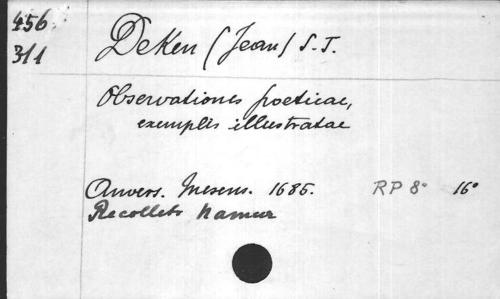 456
311
DeKen (Jean) S.J.
Observationes poeticae,
exemplis illustratae
Anvers. Mesens. 1685. RP 8° 16°
Recollets Namur